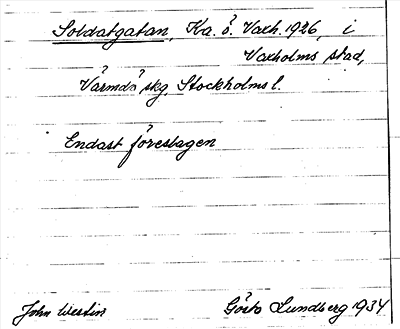 Soldatgatan, Ka. ö. Vaxh. 1926, i
Vaxholms stad,
Värmdö skg. Stockholms l.
Endast föreslagen
John Westin Gösta Lundberg 1934